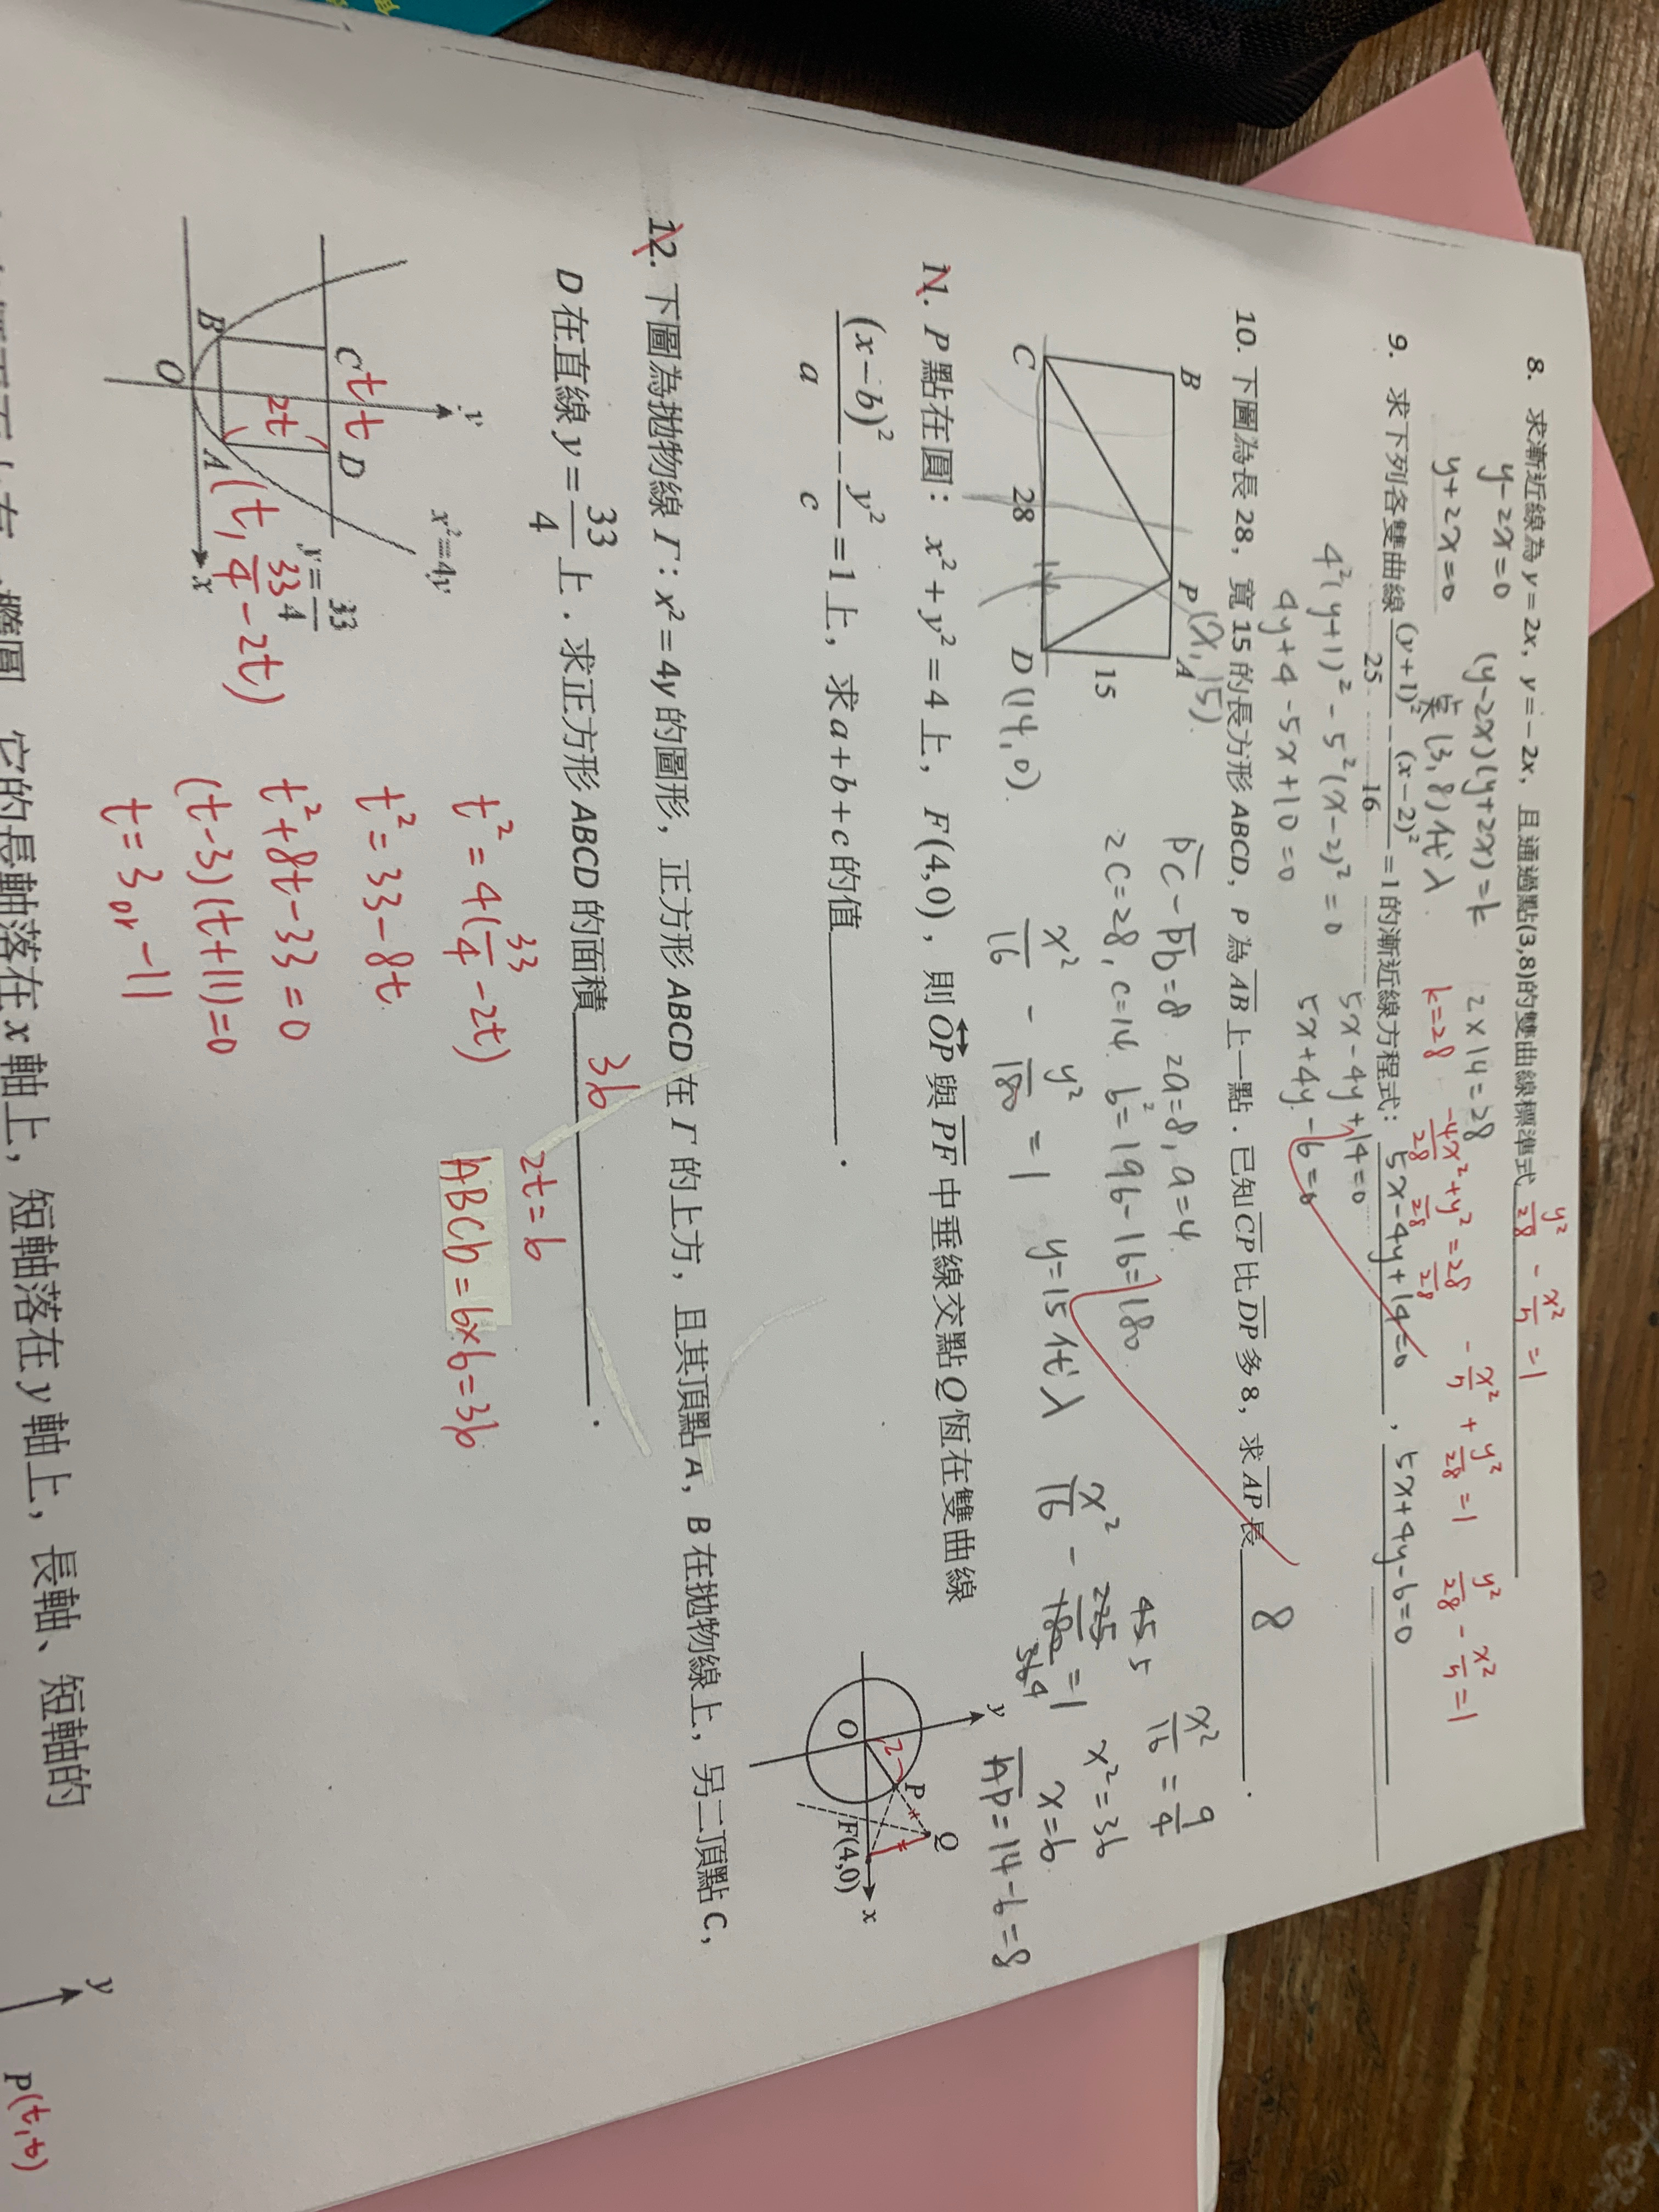 8. 求漸近線為 y=2x, y=-2x, 且通過點(3,8)的雙曲線標準式 y²/28 - x²/7 = 1
y-2x=0 (y-2x)(y+2x)=k 2×14=28
y+2x=0 (3,8)代入 k=28 -4x²/28 + y²/28 = 28/28 -x²/7 + y²/28 = 1 y²/28 - x²/7 = 1
9. 求下列各雙曲線 (y+1)²/25 - (x-2)²/16 = 1 的漸近線方程式: 5x-4y+14=0 , 5x+4y-6=0
4²(y+1)² - 5²(x-2)² = 0 5x-4y+14=0
4y+4-5x+10=0 5x+4y-6=0
10. 下圖為長 28, 寬 15 的長方形 ABCD, P 為 AB 上一點. 已知 CP 比 DP 多 8, 求 AP 長 8 .
B P(x,15) A
C 28 D(14,0) 15
PC - PD = 8 2a=8, a=4
2c=28, c=14 b²=196-16=180
x²/16 - y²/180 = 1 y=15代入 x²/16 - 225/180 = 1
45 5
36 4
x²/16 = 9/4
x²=36
x=6
AP=14-6=8
11. P 點在圓: x²+y²=4 上, F(4,0), 則 OP 與 PF 中垂線交點 Q 恆在雙曲線
(x-b)²/a - y²/c = 1 上, 求 a+b+c 的值 .
y
O 2 P Q
F(4,0) x
12. 下圖為拋物線 Γ: x²=4y 的圖形, 正方形 ABCD 在 Γ 的上方, 且其頂點 A, B 在拋物線上, 另二頂點 C,
D 在直線 y=33/4 上. 求正方形 ABCD 的面積 36 .
y x²=4y
C t t D y=33/4
2t
B A(t, 33/4 - 2t)
O x
t²=4(33/4-2t) 2t=6
t²=33-8t ABCD=6×6=36
t²+8t-33=0
(t-3)(t+11)=0
t=3 or -11
它的長軸落在 x 軸上, 短軸落在 y 軸上, 長軸、短軸的
y
P(t,t)